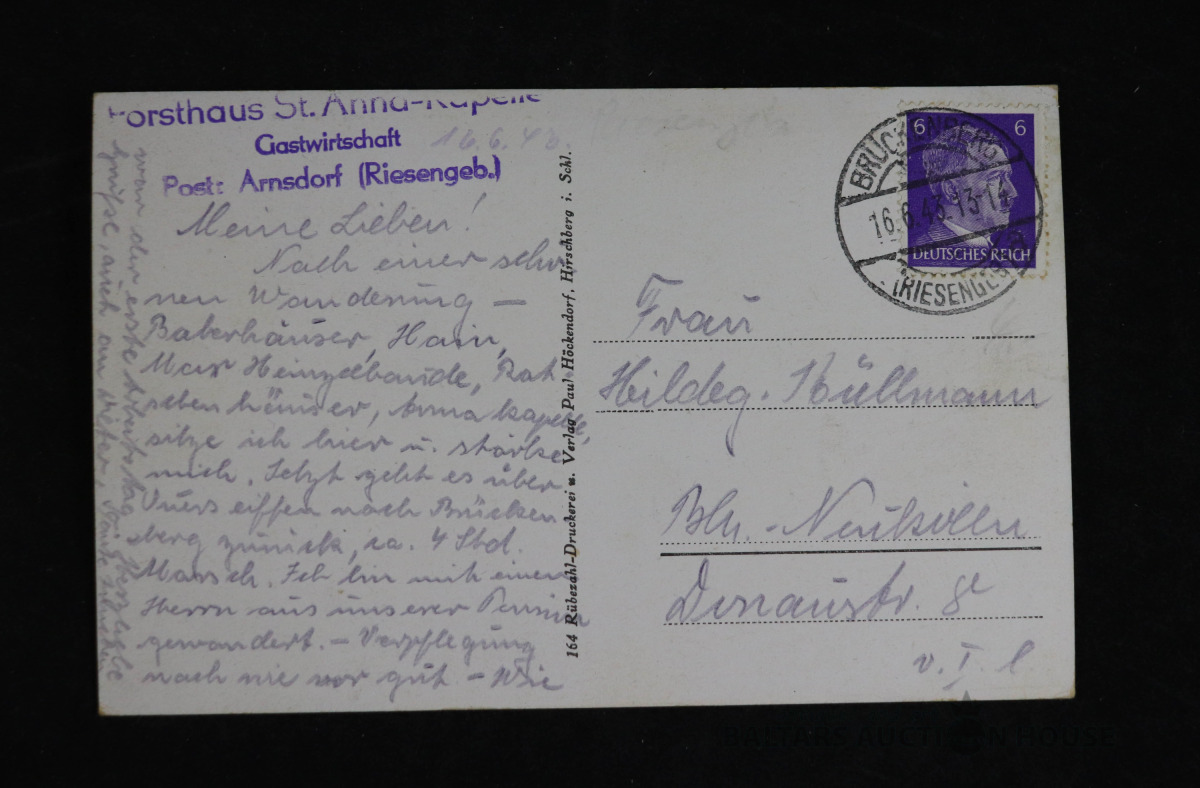 Forsthaus St. Anna-Kapelle
Gastwirtschaft
Post: Arnsdorf (Riesengeb.)
16.6.43.
Meine Lieben!
Nach einer schö-
nen Wanderung –
Baberhäuser, Hain,
Max Heinzelbaude,
seben häuser, Anna Kapelle,
sitze ich hier u. stärke
mich. Jetzt geht es über
nach Brücken
berg zurück, ca. 4 Std.
Marsch. Ich bin mit einem
Herrn aus unserer Pension
gewandert. – Verpflegung
nach wie vor gut – Wie
war der erste Arbeitstag? Herzliche
Grüße, auch an
164 Rübezahl-Druckerei u. Verlag Paul Höckendorf, Hirschberg i. Schl.
6 6
DEUTSCHES REICH
BRÜCKENBERG
16.6.43.13-14
(RIESENGEB)
Frau
Hildeg. Hüllmann
Bln.-Neukölln
Donaustr. 8
v. I. l
BALTARS AUCTION HOUSE